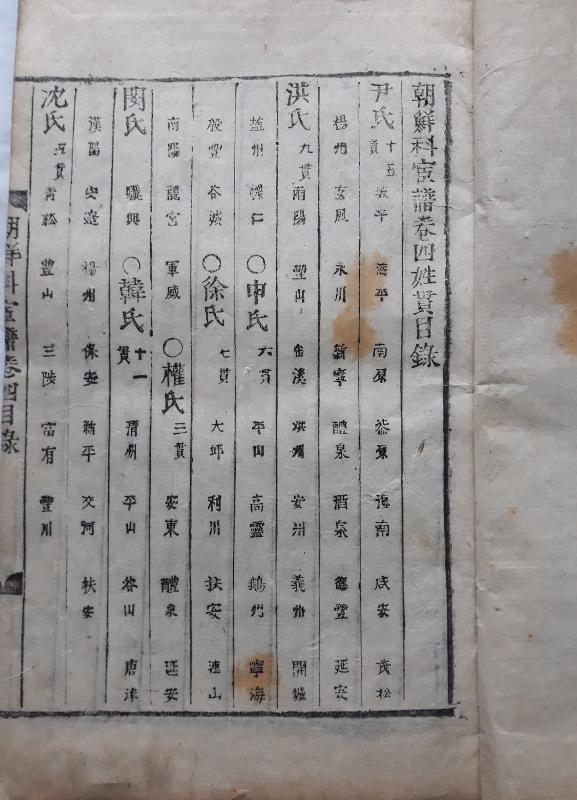 朝鮮科宦譜卷四姓貫目錄
尹氏 十五貫 坡平 海平 南原 漆原 海南 咸安 茂松
楊州 玄風 永川 新寧 醴泉 酒泉 德豐 延安
洪氏 九貫 南陽 豐山 缶溪 洪州 安州 義州 開城
益州 懷仁 ○申氏 六貫 平山 高靈 鵝州 寧海
殷豐 谷城 ○徐氏 七貫 大邱 利川 扶安 連山
南陽 龍宮 軍威 ○權氏 三貫 安東 醴泉 延安
閔氏 驪興 ○韓氏 十一貫 淸州 平山 谷山 唐津
漢陽 安邊 楊州 保安 新平 交河 扶安
沈氏 五貫 靑松 豐山 三陟 富有 豐川
朝鮮科宦譜卷四目錄